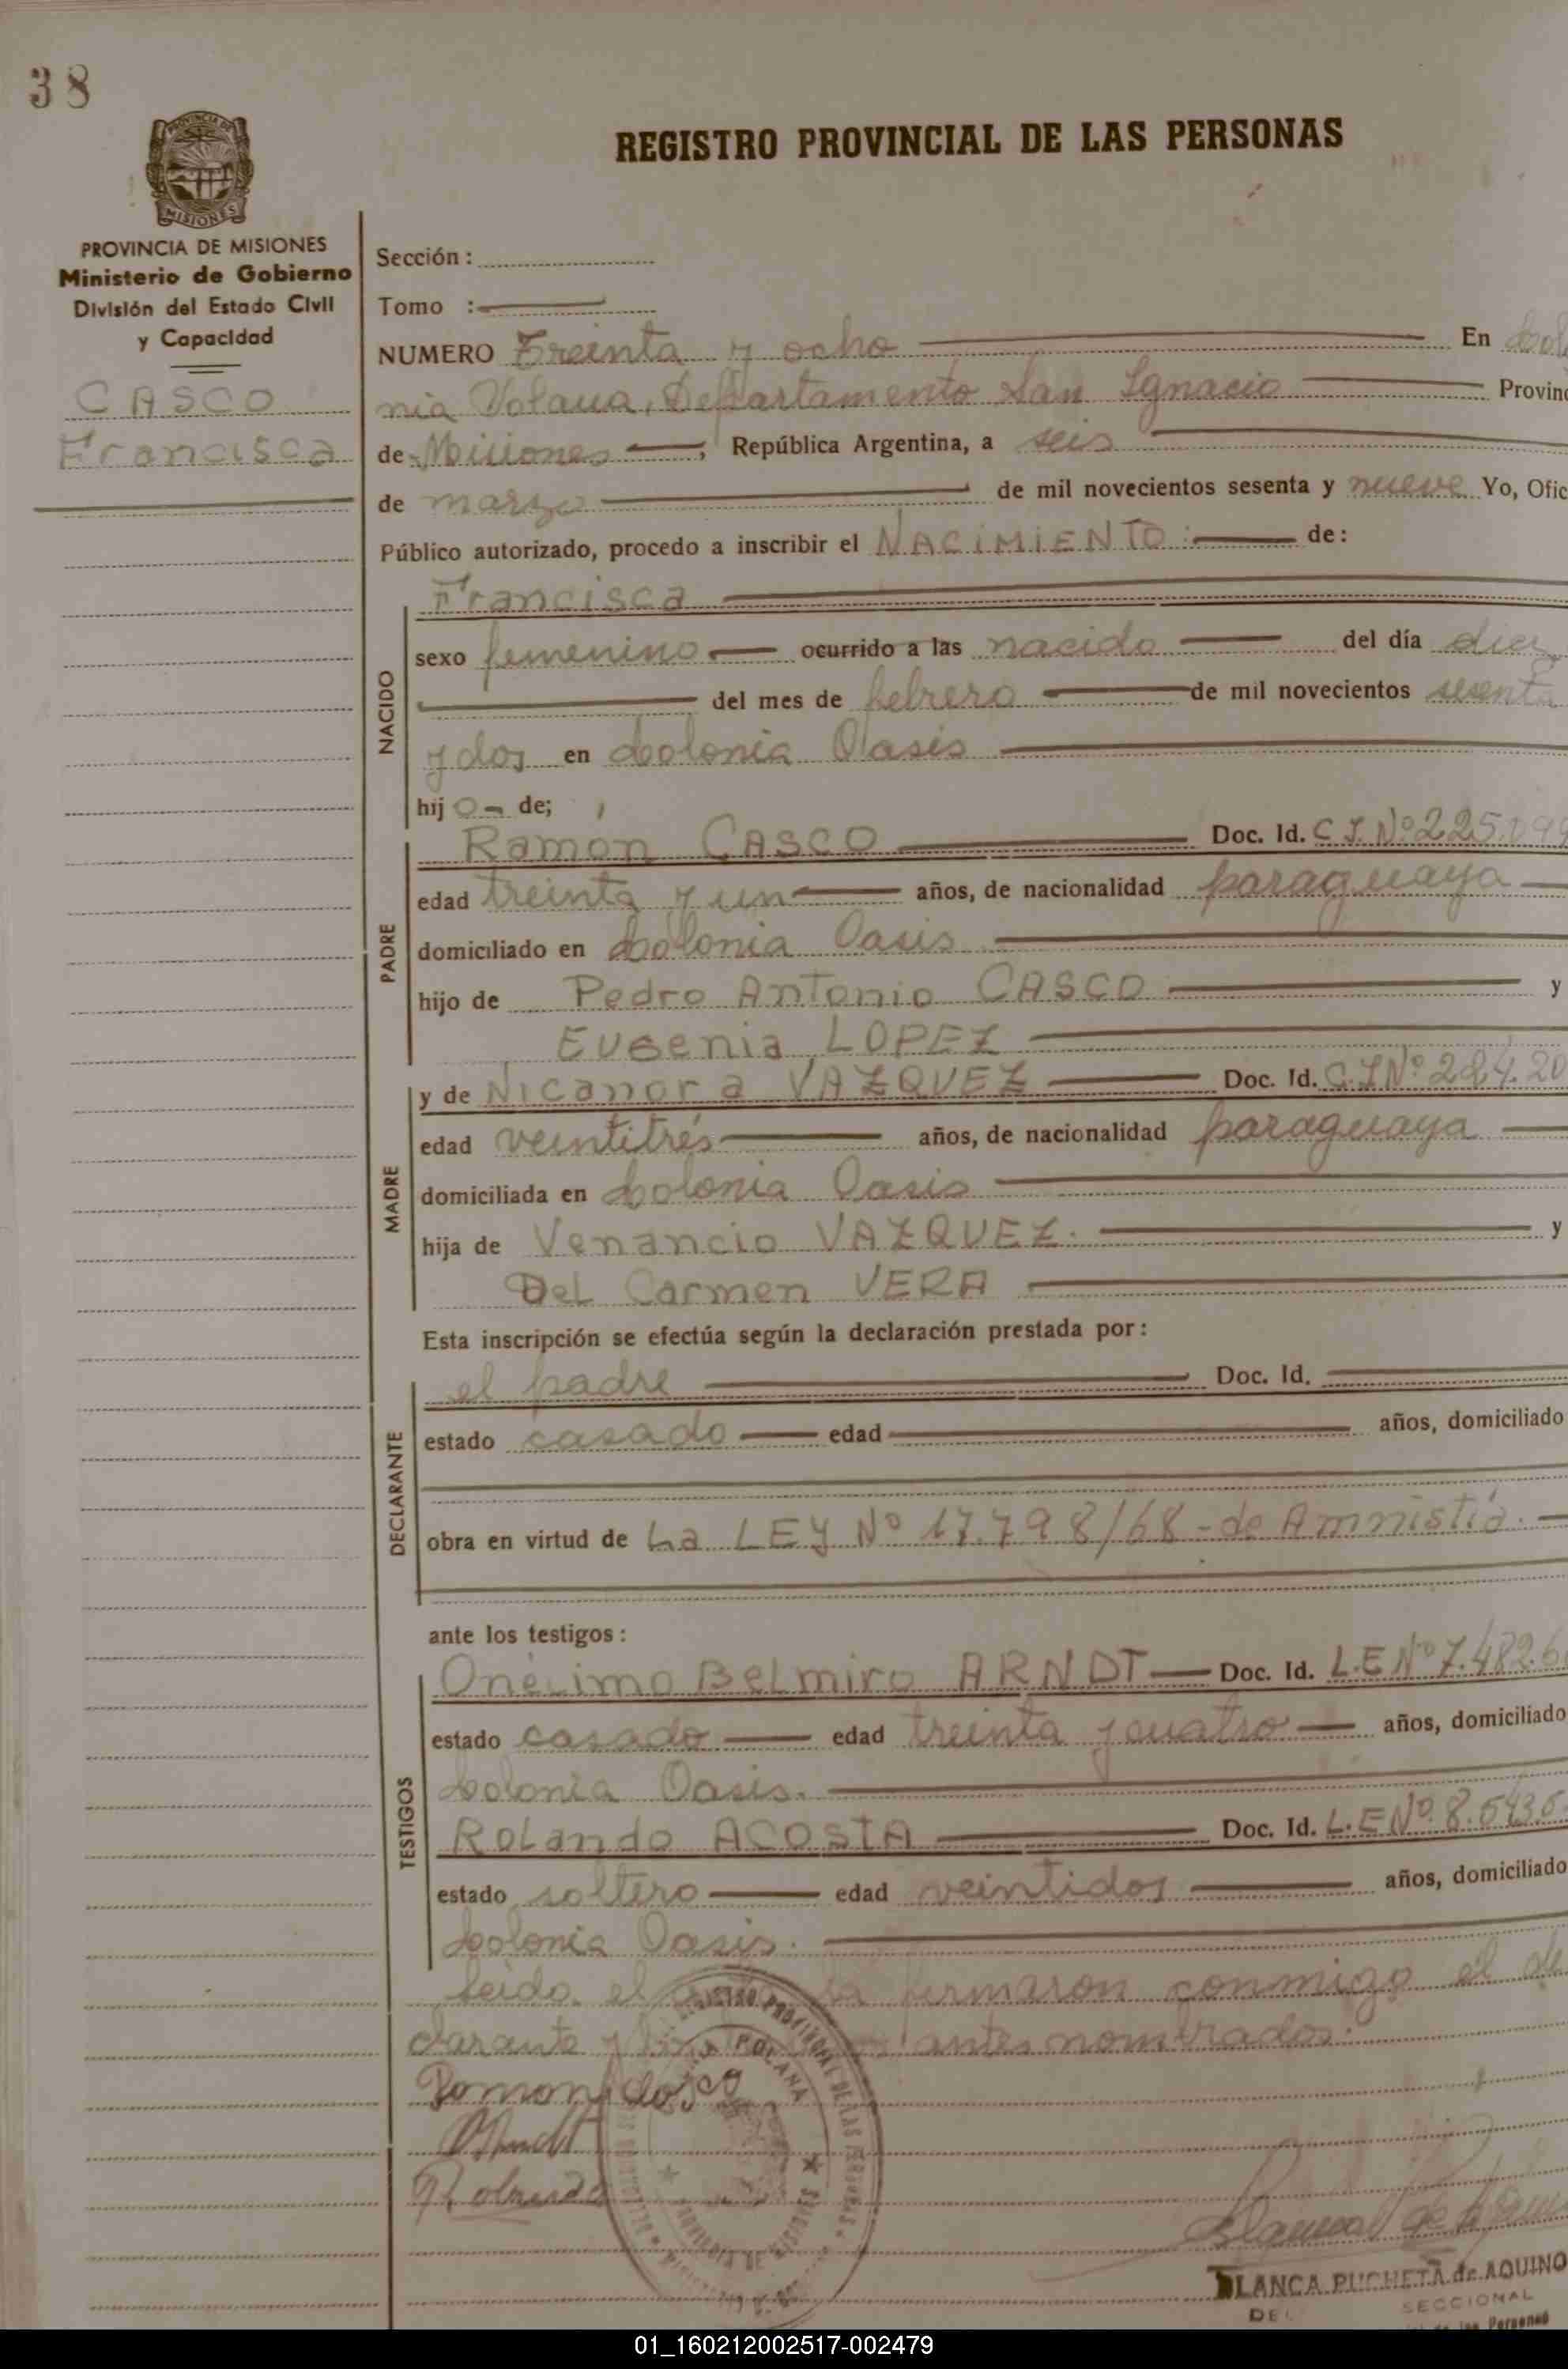 38
REGISTRO PROVINCIAL DE LAS PERSONAS
PROVINCIA DE
MISIONES
PROVINCIA DE MISIONES
Ministerio de Gobierno
División del Estado Civil
y Capacidad
CASCO
Francisca
Sección :
Tomo :
NUMERO Treinta y ocho En Colo
nia Polana, Departamento San Ignacio Provinc
de Misiones, República Argentina, a seis
de marzo de mil novecientos sesenta y nueve Yo, Ofic
Público autorizado, procedo a inscribir el NACIMIENTO : de:
NACIDO
Francisca
sexo femenino ocurrido a las nacido del día diez
del mes de febrero de mil novecientos sesenta
y dos en Colonia Oasis
hijo de;
PADRE
Ramón CASCO Doc. Id. C I. Nº 225.
edad treinta y un años, de nacionalidad paraguaya
domiciliado en Colonia Oasis
hijo de Pedro Antonio CASCO y
Eugenia LOPEZ
MADRE
y de Nicanora VAZQUEZ Doc. Id. C.I Nº 224.20
edad veintitrés años, de nacionalidad paraguaya
domiciliada en Colonia Oasis
hija de Venancio VAZQUEZ. y
Del Carmen VERA
Esta inscripción se efectúa según la declaración prestada por:
DECLARANTE
el padre Doc. Id.
estado casado edad años, domiciliado
obra en virtud de La LEY Nº 17.798/68 - de Amnistía.
ante los testigos:
TESTIGOS
Onécimo Belmiro ARNDT Doc. Id. L.E Nº 7.482.6
estado casado edad treinta y cuatro años, domiciliado
Colonia Oasis.
Rolando ACOSTA Doc. Id. L.E Nº. 8.543.
estado soltero edad veintidos años, domiciliado
Colonia Oasis.
Leido el firmaron conmigo el de
clarante y antes nombrados.
Ramon Casco
BLANCA PUCHETA de AQUINO
SECCIONAL
de las Personas
01_160212002517-002479